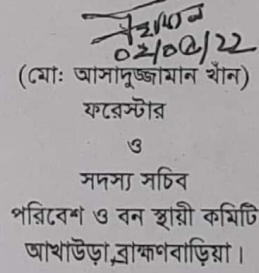 ০২/০৫/22
(মোঃ আসাদুজ্জামান খাঁন)
ফরেস্টার
ও
সদস্য সচিব
পরিবেশ ও বন স্থায়ী কমিটি
আখাউড়া,ব্রাহ্মণবাড়িয়া।